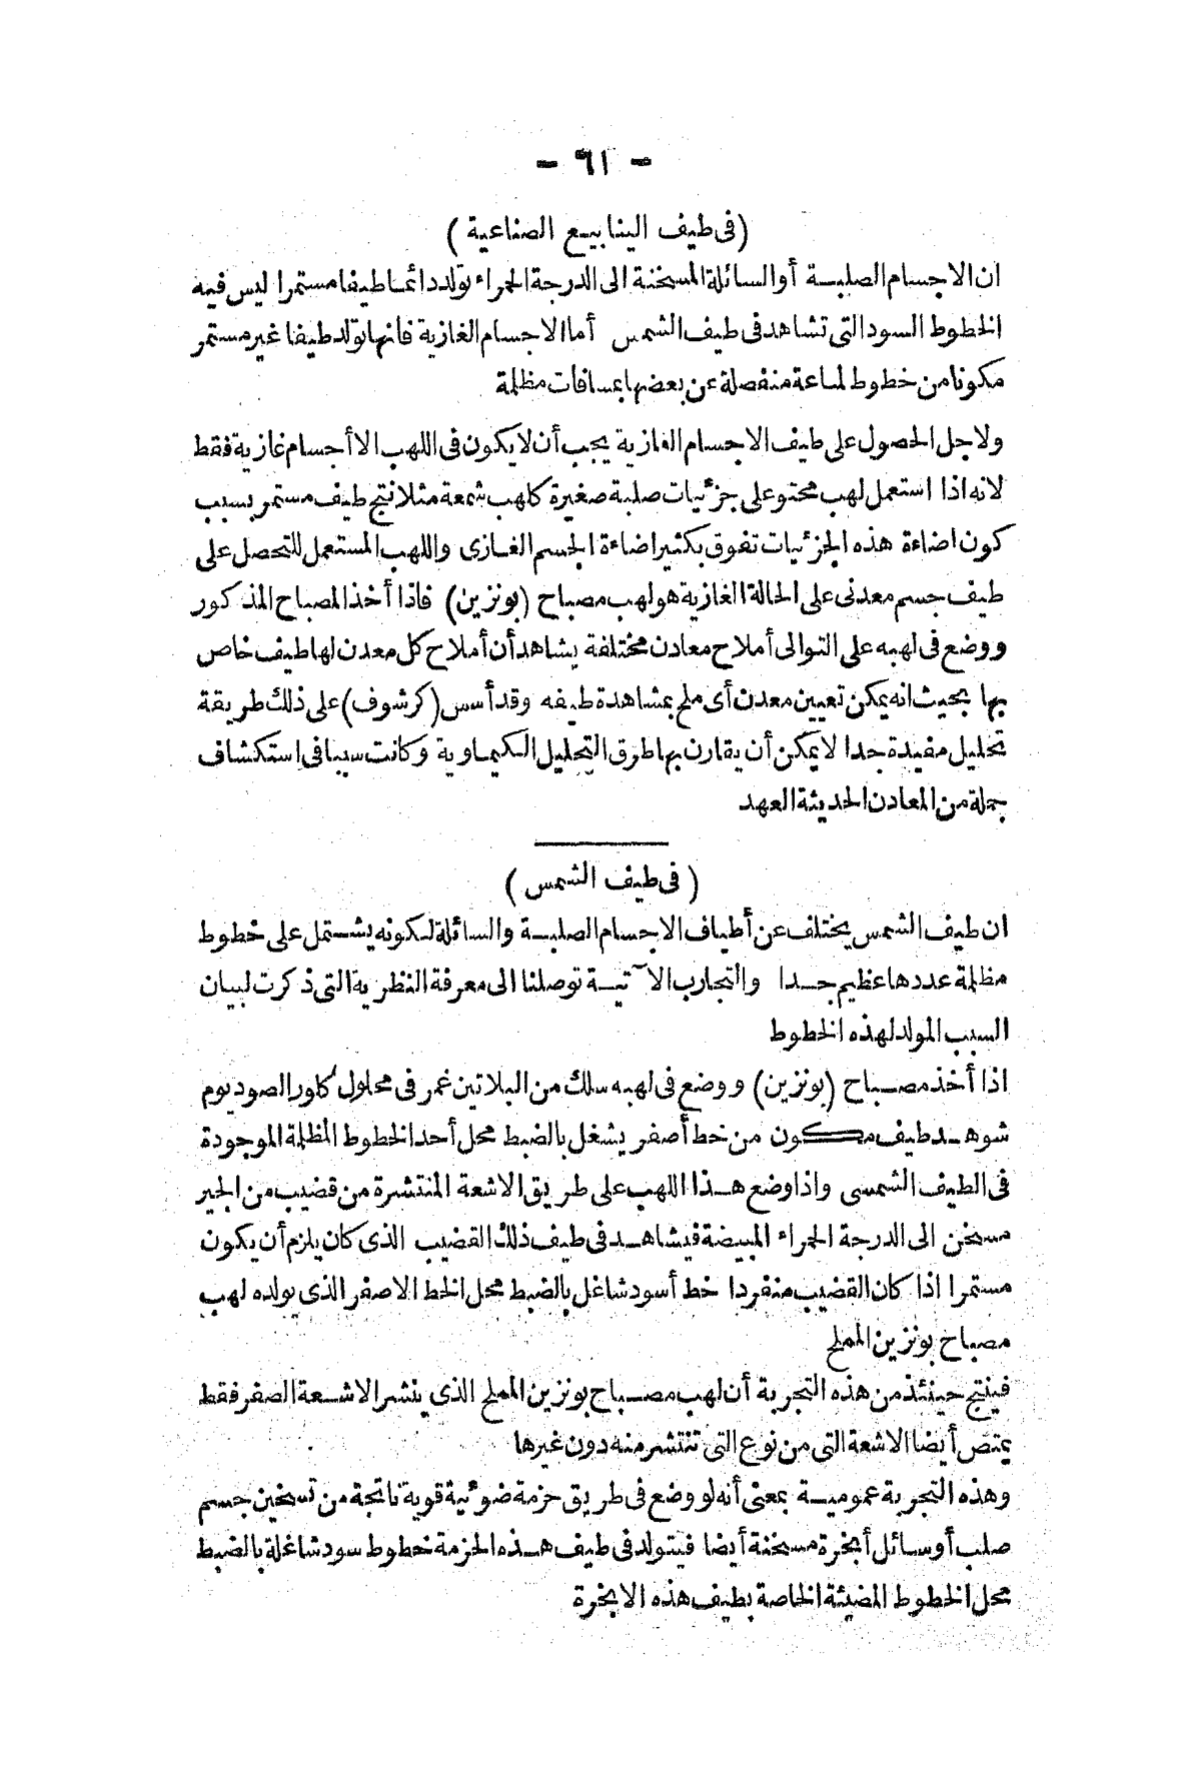 - ٦١ -
(فى طيف الينابيع الصناعية)
ان الاجسام الصلبة أو السائلة المسخنة الى الدرجة الحمراء تولد دائما طيفا مستمرا ليس فيه
الخطوط السود التى تشاهد فى طيف الشمس أما الاجسام الغازية فانها تولد طيفا غير مستمر
مكونا من خطوط لماعة منفصلة عن بعضها بمسافات مظلمة
ولاجل الحصول على طيف الاجسام الغازية يجب أن لا يكون فى اللهب الا أجسام غازية فقط
لانه اذا استعمل لهب محتو على جزئيات صلبة صغيرة كلهب شمعة مثلا نتج طيف مستمر بسبب
كون اضاءة هذه الجزئيات تفوق بكثير اضاءة الجسم الغازى واللهب المستعمل للتحصل على
طيف جسم معدنى على الحالة الغازية هو لهب مصباح (بونزين) فاذا أخذ المصباح المذكور
ووضع فى لهبه على التوالى أملاح معادن مختلفة يشاهد أن أملاح كل معدن لها طيف خاص
بها بحيث انه يمكن تعيين معدن أى ملح بمشاهدة طيفه وقد أسس (كرشوف) على ذلك طريقة
تحليل مفيدة جدا لا يمكن أن يقارن بها طرق التحليل الكيماوية وكانت سببا فى استكشاف
جملة من المعادن الحديثة العهد
(فى طيف الشمس)
ان طيف الشمس يختلف عن أطياف الاجسام الصلبة والسائلة لكونه يشتمل على خطوط
مظلمة عددها عظيم جدا والتجارب الآتية توصلنا الى معرفة النظرية التى ذكرت لبيان
السبب المولد لهذه الخطوط
اذا أخذ مصباح (بونزين) ووضع فى لهبه سلك من البلاتين غمر فى محلول كلور الصوديوم
شوهد طيف مكون من خط أصفر يشغل بالضبط محل أحد الخطوط المظلمة الموجودة
فى الطيف الشمسى واذا وضع هذا اللهب على طريق الاشعة المنتشرة من قضيب من الجير
مسخن الى الدرجة الحمراء المبيضة فيشاهد فى طيف ذلك القضيب الذى كان يلزم أن يكون
مستمرا اذا كان القضيب منفردا خط أسود شاغل بالضبط محل الخط الاصفر الذى يولده لهب
مصباح بونزين المملح
فينتج حينئذ من هذه التجربة أن لهب مصباح بونزين المملح الذى ينشر الاشعة الصفر فقط
يمتص أيضا الاشعة التى من نوع التى تنتشر منه دون غيرها
وهذه التجربة عمومية بمعنى أنه لو وضع فى طريق حزمة ضوئية قوية ناتجة من تسخين جسم
صلب أو سائل أبخرة مسخنة أيضا فيتولد فى طيف هذه الحزمة خطوط سود شاغلة بالضبط
محل الخطوط المضيئة الخاصة بطيف هذه الابخرة